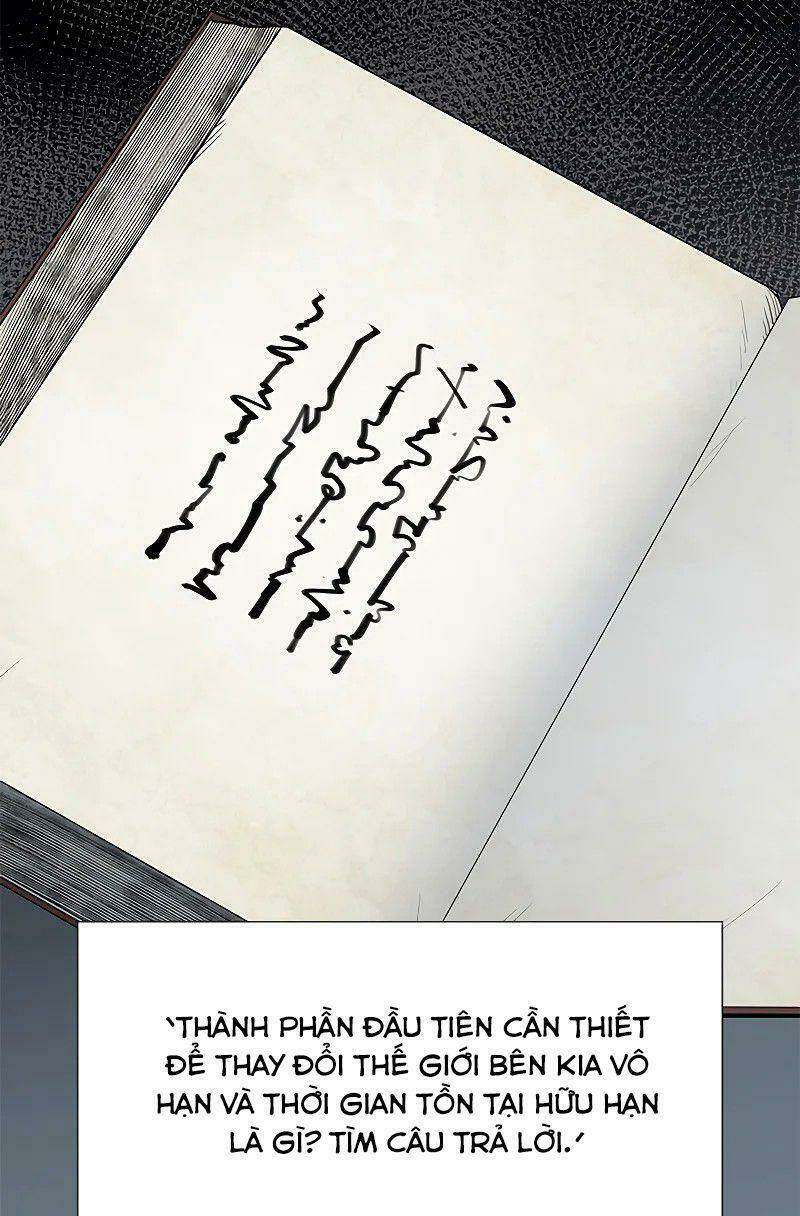 'THÀNH PHẦN ĐẦU TIÊN CẦN THIẾT
ĐỂ THAY ĐỔI THẾ GIỚI BÊN KIA VÔ
HẠN VÀ THỜI GIAN TỒN TẠI HỮU HẠN
LÀ GÌ? TÌM CÂU TRẢ LỜI.'